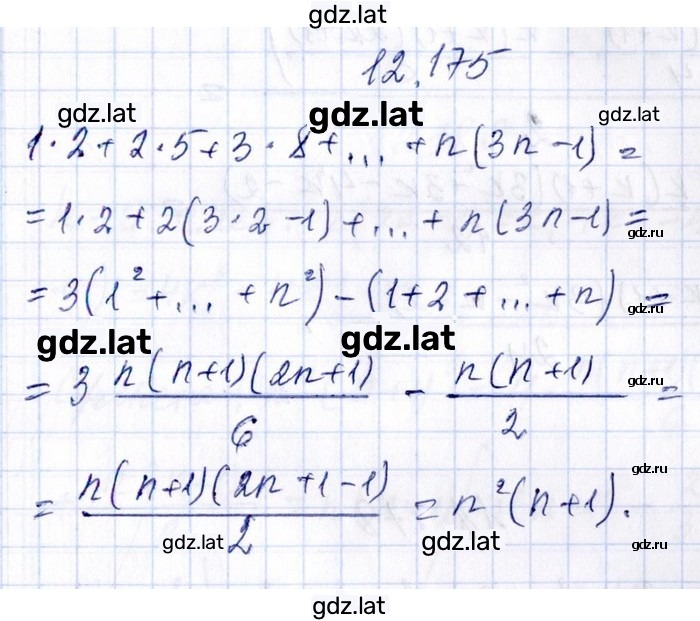 gdz.lat
12.175
gdz.lat gdz.lat gdz.lat
1·2+2·5+3·8+...+n(3n-1)=
=1·2+2(3·2-1)+...+n(3n-1)=
gdz.lat
=3(1²+...+n²)-(1+2+...+n)=
gdz.lat
gdz.lat gdz.lat
=3 n(n+1)(2n+1)/6 - n(n+1)/2 =
gdz.lat
=n(n+1)(2n+1-1)/2=n²(n+1).
gdz.lat
gdz.lat gdz.lat gdz.lat
gdz.lat